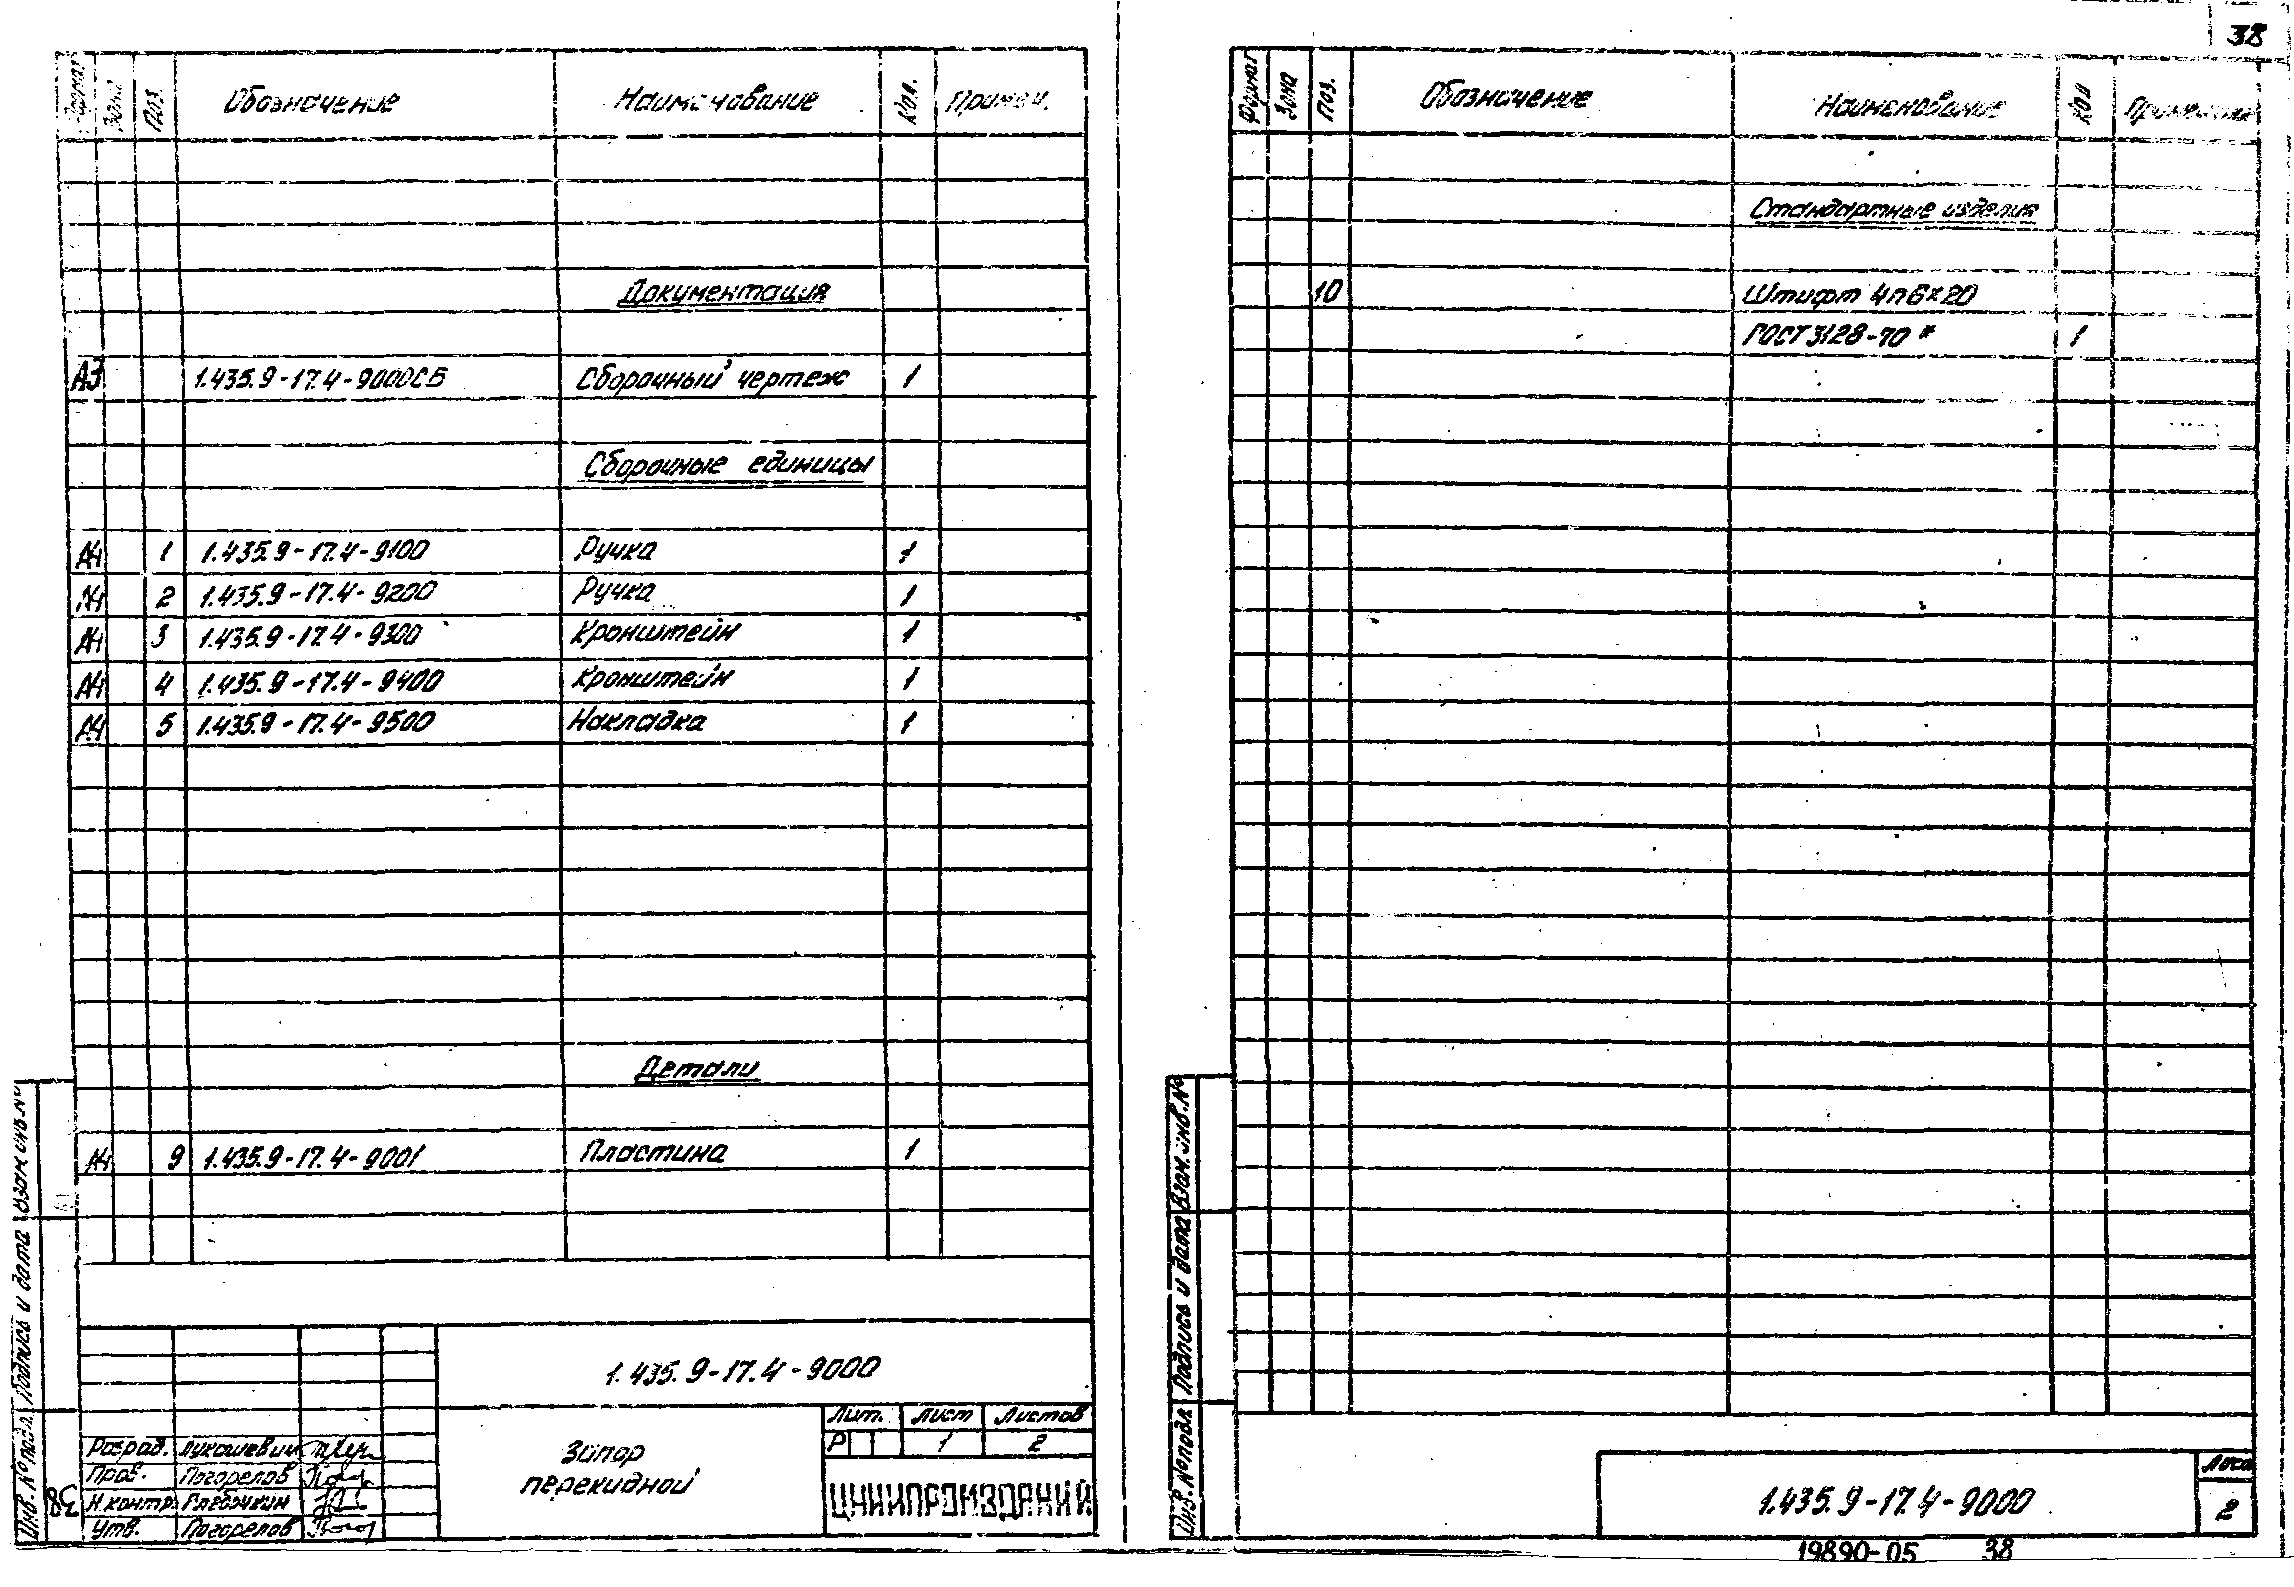 38
Формат Зона Поз. Обозначение Наименование Кол. Примеч.
Документация
А3 1.435.9-17.4-9000СБ Сборочный чертеж 1
Сборочные единицы
А4 1 1.435.9-17.4-9100 Ручка 1
А4 2 1.435.9-17.4-9200 Ручка 1
А4 3 1.435.9-17.4-9300 Кронштейн 1
А4 4 1.435.9-17.4-9400 Кронштейн 1
А4 5 1.435.9-17.4-9500 Накладка 1
Детали
А4 9 1.435.9-17.4-9001 Пластина 1
Инв. № подл. Подпись и дата Взам инв. №
38
1.435.9-17.4-9000
Лит. Лист Листов
Р 1 2
Разраб. Лукашевич
Пров. Погорелов
Н контр. Глебочкин
Утв. Погорелов
Запор
перекидной
ЦНИИПРОМЗДАНИЙ
Формат Зона Поз. Обозначение Наименование Кол Примечание
Стандартные изделия
10 Штифт 4п6х20
ГОСТ 3128-70* 1
Инв. № подл. Подпись и дата Взам. инв. №
1.435.9-17.4-9000
Лист
2
19890-05 38